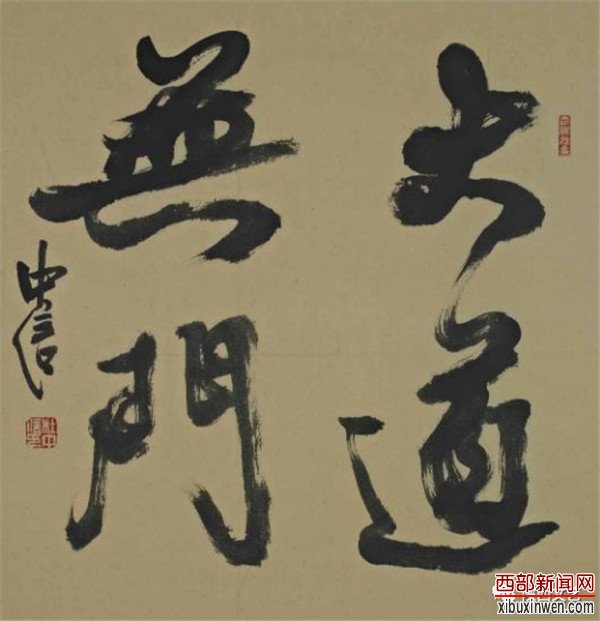 大道
無門
中信
西部新闻网
xibuxinwen.com